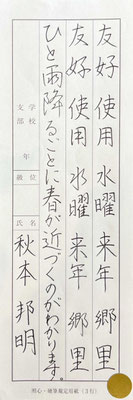 友好 使用 水曜 来年 郷里
友好 使用 水曜 来年 郷里
ひと雨降るごとに春が近づくのがわかります。
学校
支部
年
級位
氏名
秋本邦明